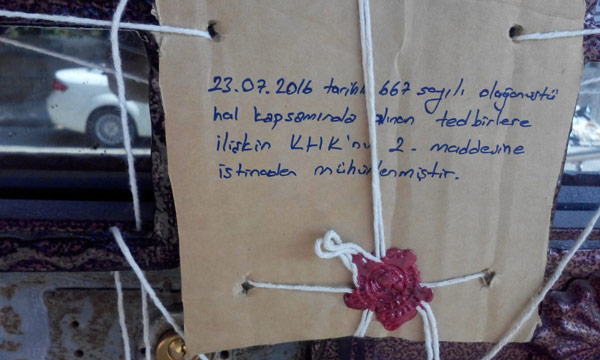 23.07.2016 tarihli 667 sayılı olağanüstü
hal kapsamında alınan tedbirlere
ilişkin KHK'nın 2. maddesine
istinaden mühürlenmiştir.